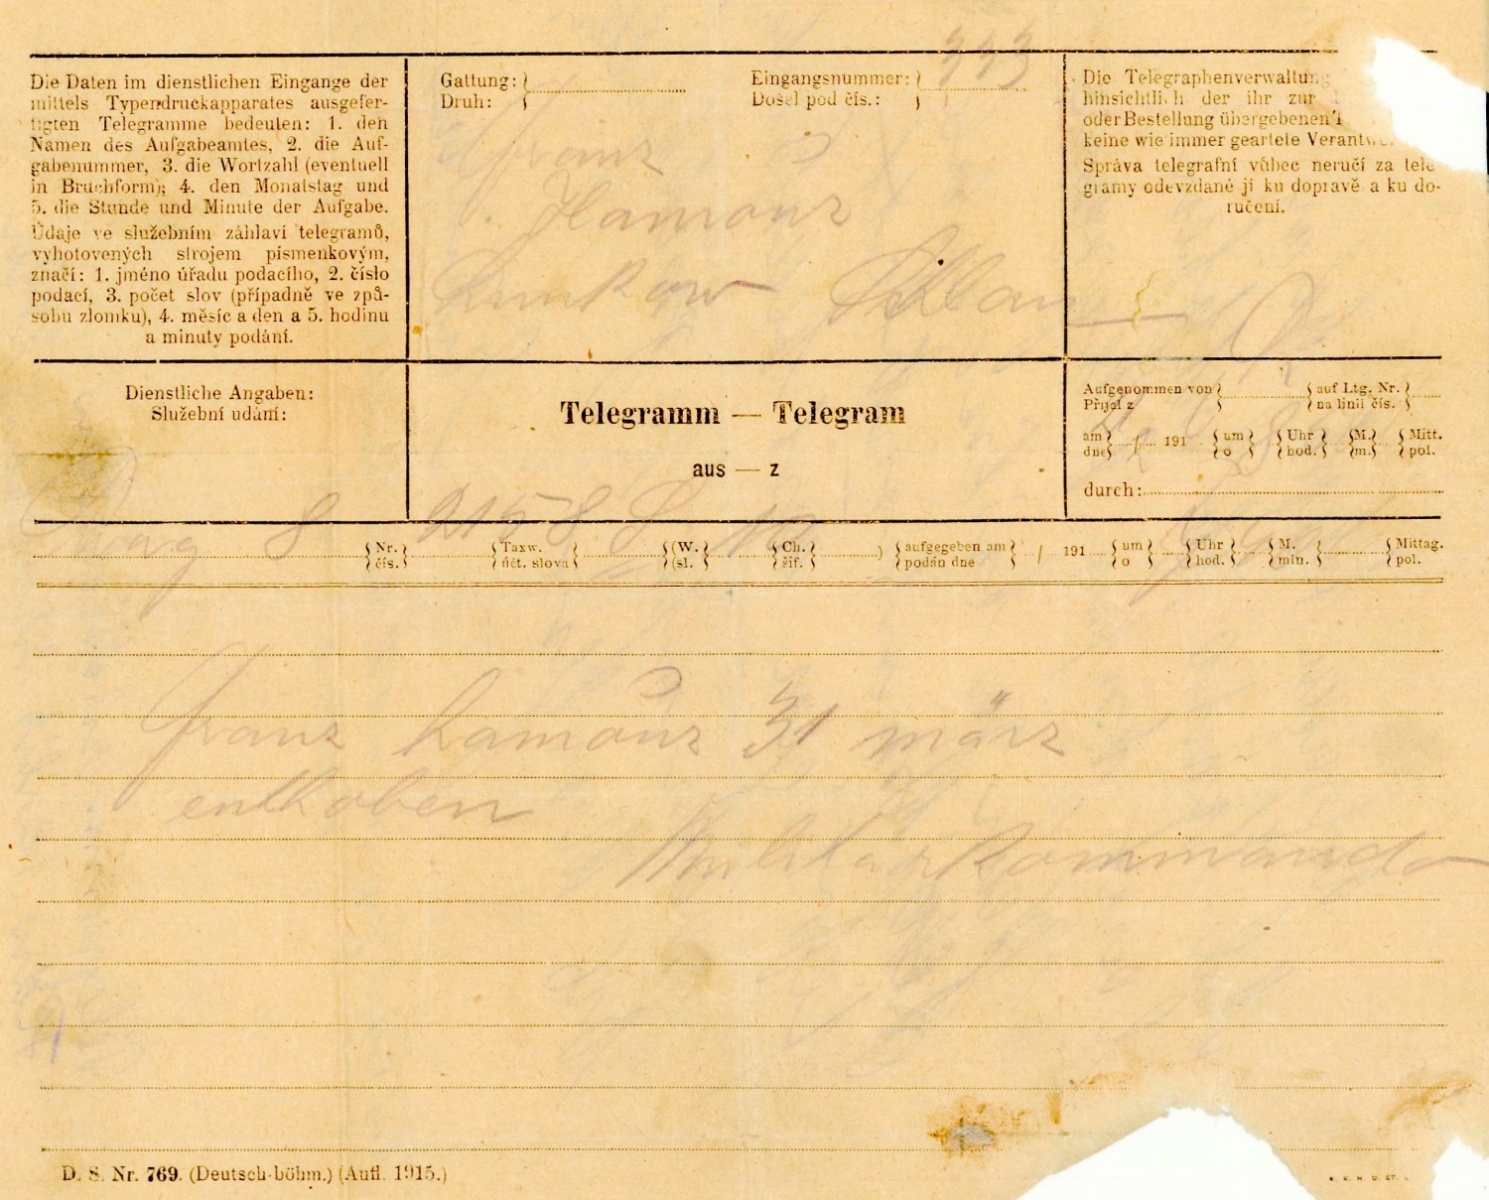 Die Daten im dienstlichen Eingange der
mittels Typendruckapparates ausgefer-
tigten Telegramme bedeuten: 1. den
Namen des Aufgabeamtes, 2. die Auf-
gabenummer, 3. die Wortzahl (eventuell
in Bruchform); 4. den Monatstag und
5. die Stunde und Minute der Aufgabe.
Údaje ve služebním záhlaví telegramů,
vyhotovených strojem písmenkovým,
značí: 1. jméno úřadu podacího, 2. číslo
podací, 3. počet slov (případně ve způ-
sobu zlomku), 4. měsíc a den a 5. hodinu
a minuty podání.
Gattung:
Druh:
Eingangsnummer: 333
Došel pod čís.:
Franz
Hamouz
Die Telegraphenverwaltung
hinsichtlich der ihr zur
oder Bestellung übergebenen T
keine wie immer geartete Verantw
Správa telegrafní vůbec neručí za tele-
gramy odevzdané jí ku dopravě a ku do-
ručení.
Dienstliche Angaben:
Služební udání:
Telegramm — Telegram
aus — z
Aufgenommen von auf Ltg. Nr.
Přijal z na linii čís.
am / 191 um Uhr M. Mitt.
dne o hod. m. pol.
durch:
Prag 8 2158
Nr. Taxw. (W. Ch. ) aufgegeben am / 191 um Uhr M. Mittag.
čís. účt. slova (sl. šif. podán dne o hod. min. pol.
franz hamouz 31 märz
enthoben
Militärkommando
D. S. Nr. 769. (Deutsch-böhm.) (Aufl. 1915.)